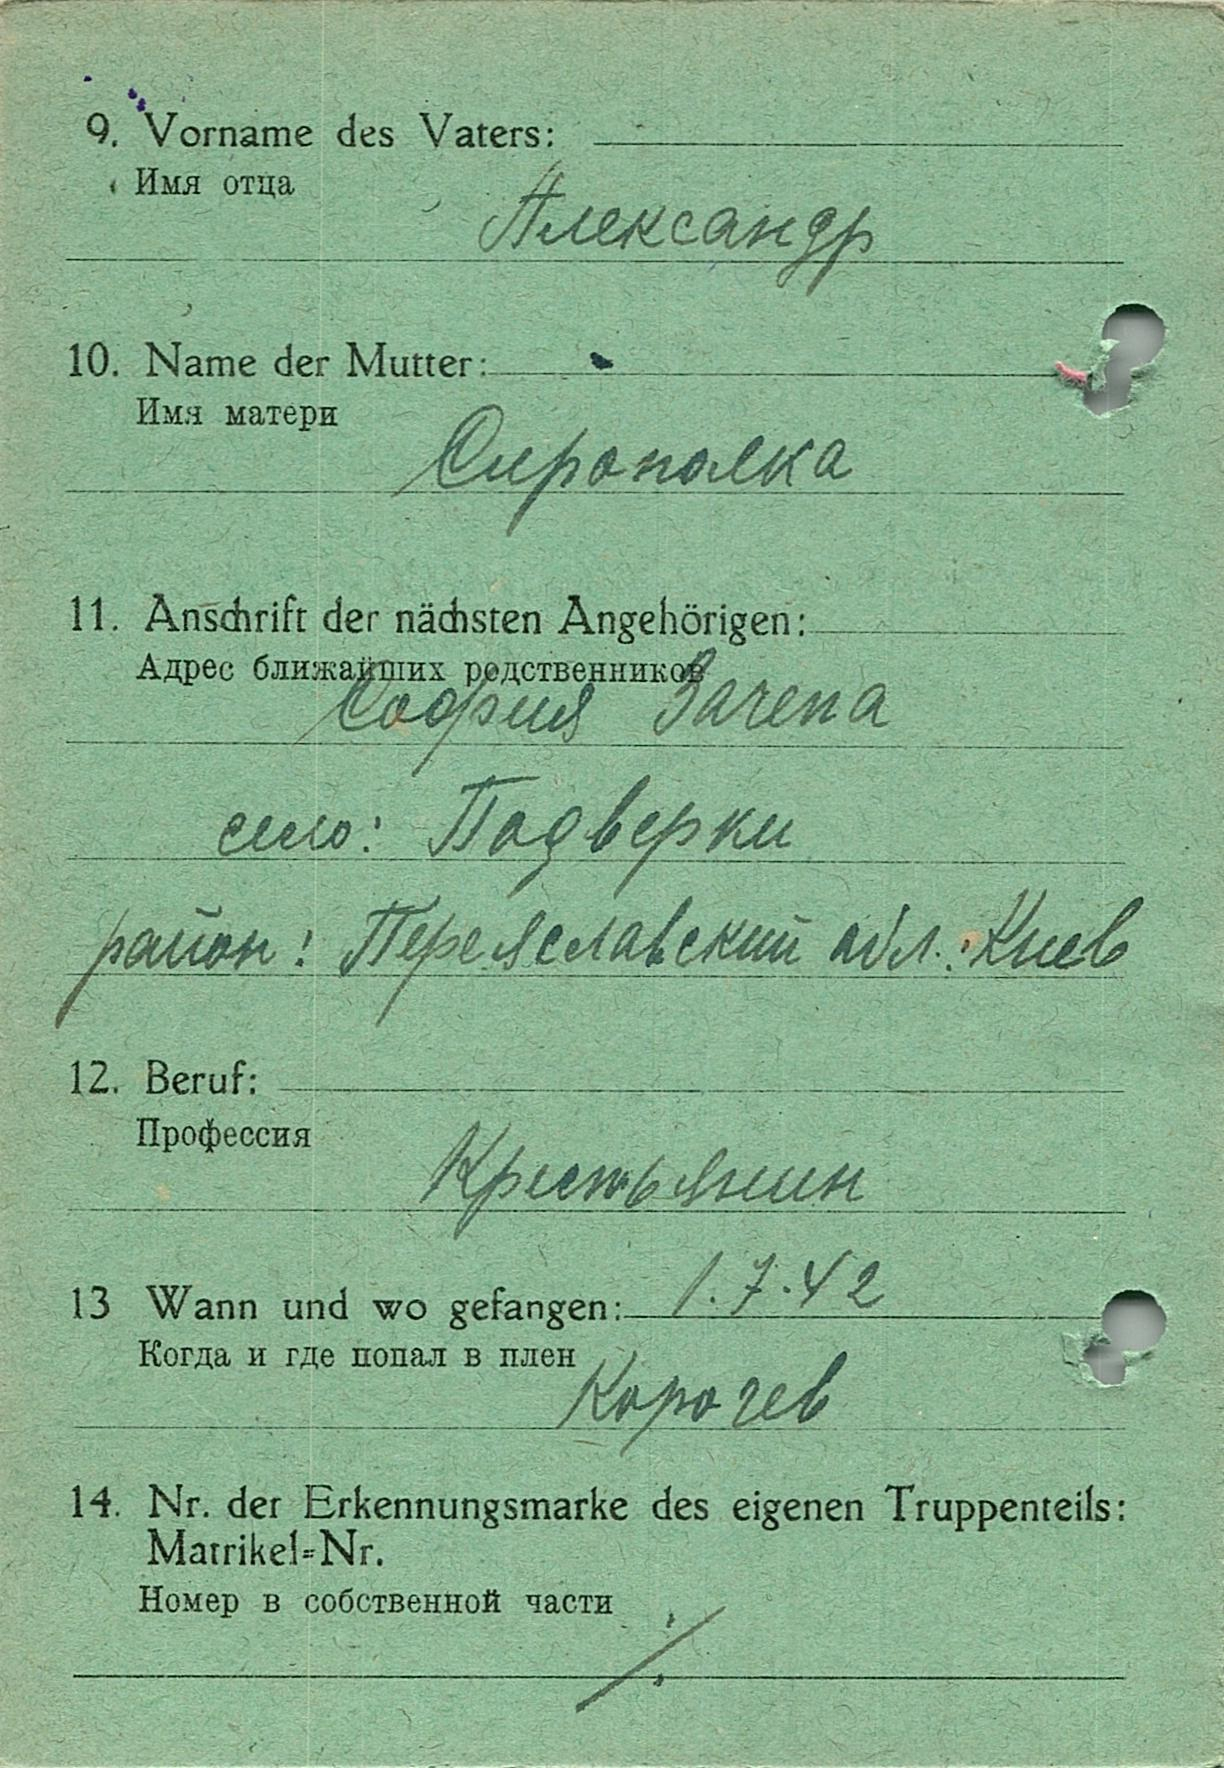 9. Vorname des Vaters:
Имя отца
Александр
10. Name der Mutter:
Имя матери
Сирополка
11. Anschrift der nächsten Angehörigen:
Адрес ближайших родственников
София Зачепа
село: Подверки
район: Переяславский обл.: Киев
12. Beruf:
Профессия
Крестьянин
13 Wann und wo gefangen: 1.7.42
Когда и где попал в плен
Корочев
14. Nr. der Erkennungsmarke des eigenen Truppenteils:
Matrikel=Nr.
Номер в собственной части
./.